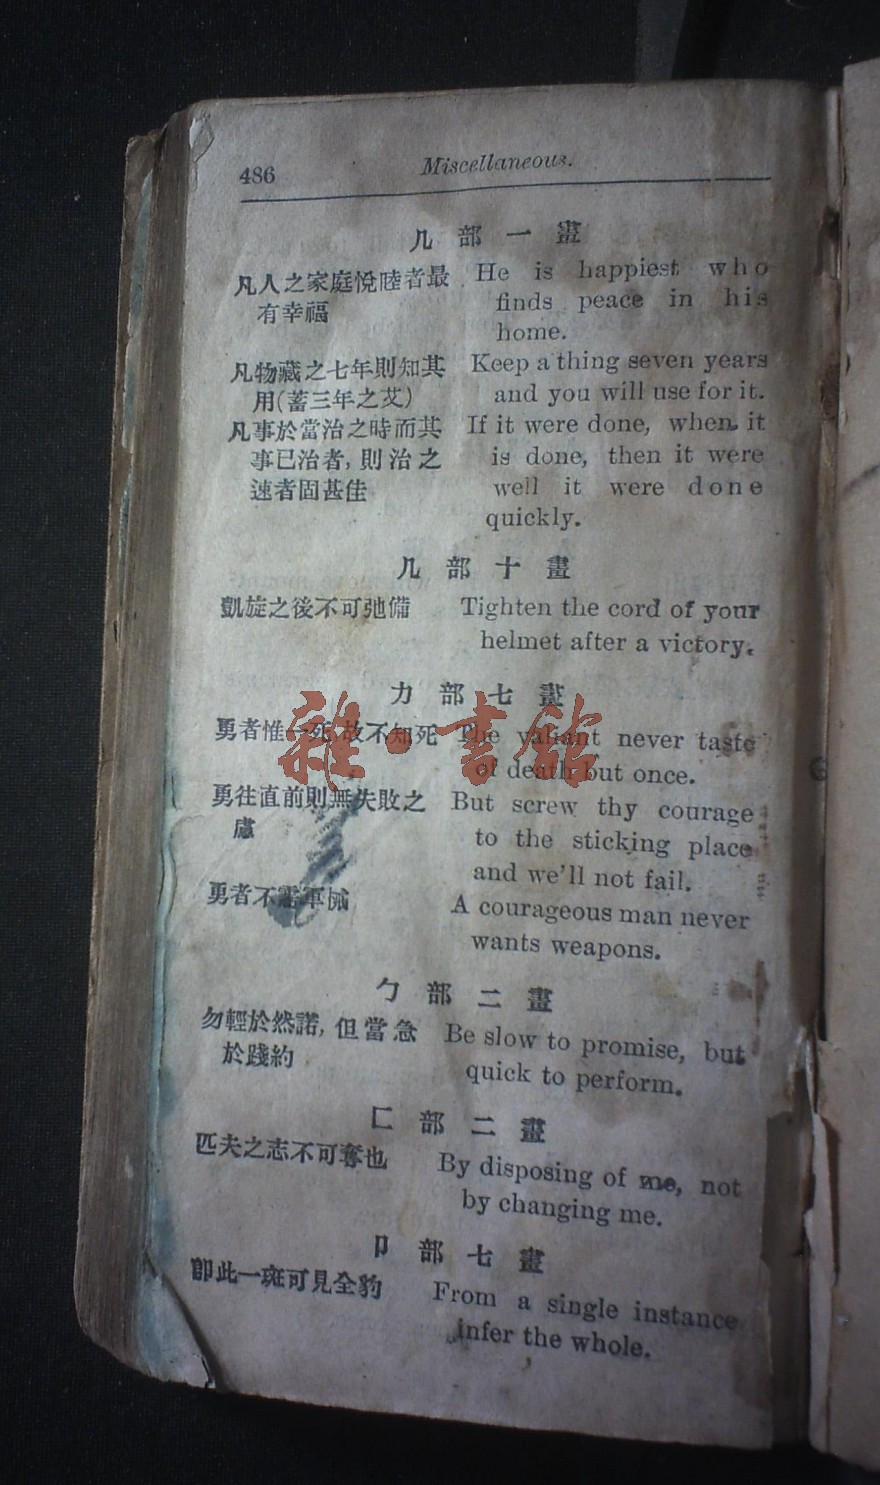 486 Miscellaneous.
几部一畫
凡人之家庭悅睦者最
有幸福
He is happiest who
finds peace in his
home.
凡物藏之七年則知其
用(蓄三年之艾)
Keep a thing seven years
and you will use for it.
凡事於當治之時而其
事已治者,則治之
速者固甚佳
If it were done, when it
is done, then it were
well it were done
quickly.
几部十畫
凱旋之後不可弛備
Tighten the cord of your
helmet after a victory.
力部七畫
勇者惟一死,故不知死
The valiant never taste
of death but once.
勇往直前則無失敗之
慮
But screw thy courage
to the sticking place
and we'll not fail.
勇者不軍械
A courageous man never
wants weapons.
勹部二畫
勿輕於然諾,但當急
於踐約
Be slow to promise, but
quick to perform.
匚部二畫
匹夫之志不可奪也
By disposing of me, not
by changing me.
卩部七畫
卽此一斑可見全豹
From a single instance
infer the whole.
雜·書館